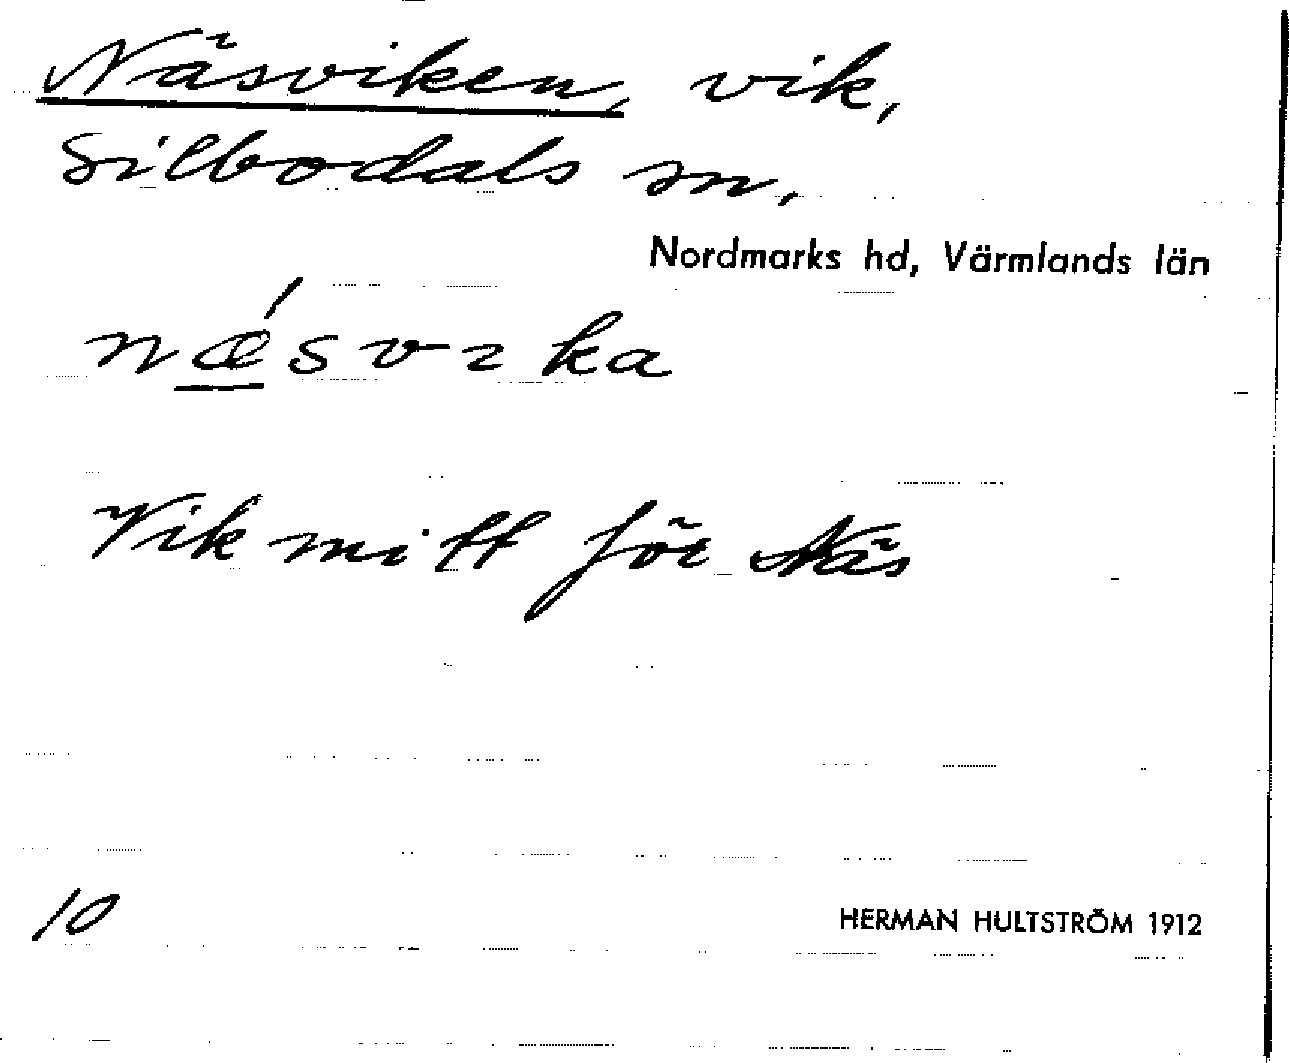 Näsviken, vik,
Silbodals sn,
Nordmarks hd, Värmlands län
nǽsvıka
Vik mitt för Näs
10
HERMAN HULTSTRÖM 1912